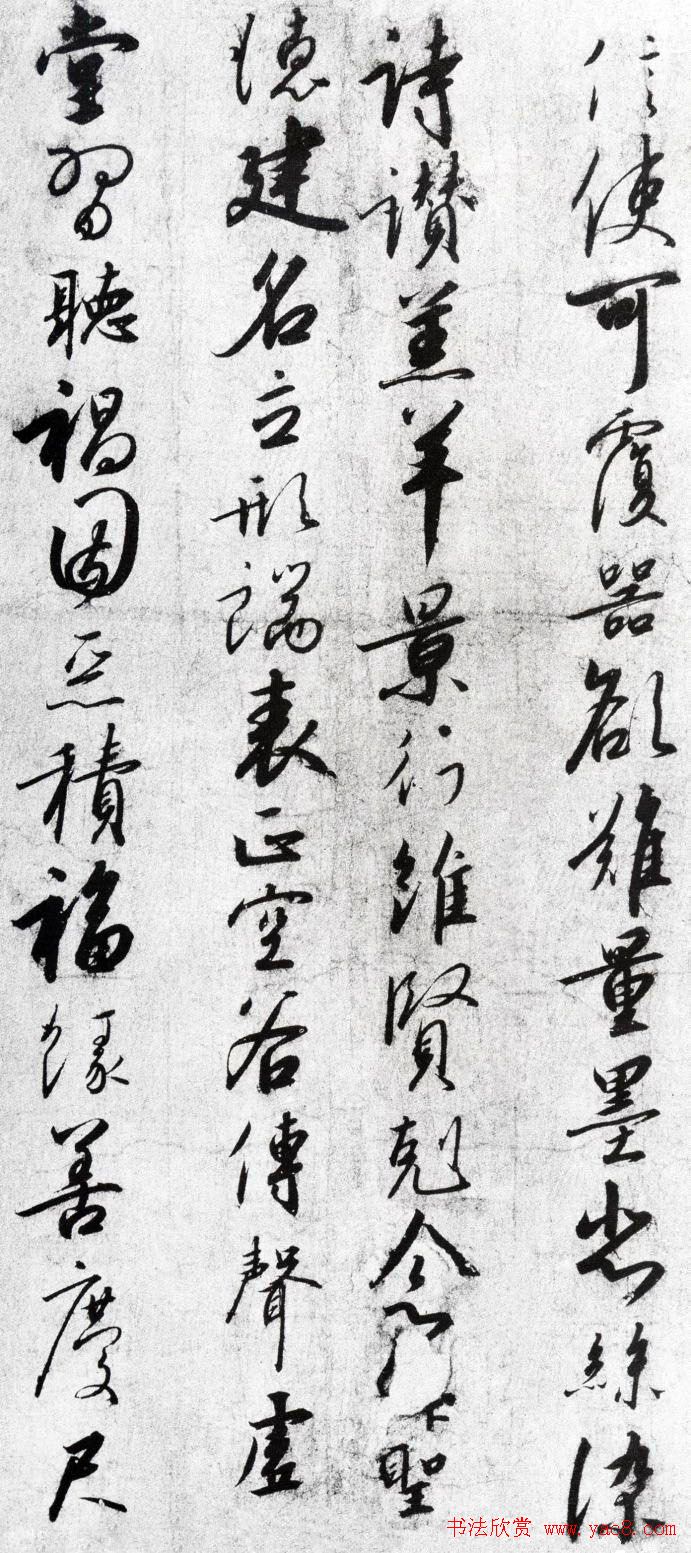 信使可覆器欲難量墨悲絲染
詩讚羔羊景行維賢剋念作聖
德建名立形端表正空谷傳聲虛
堂習聽禍因惡積福緣善慶尺
书法欣赏 www.yac8.com